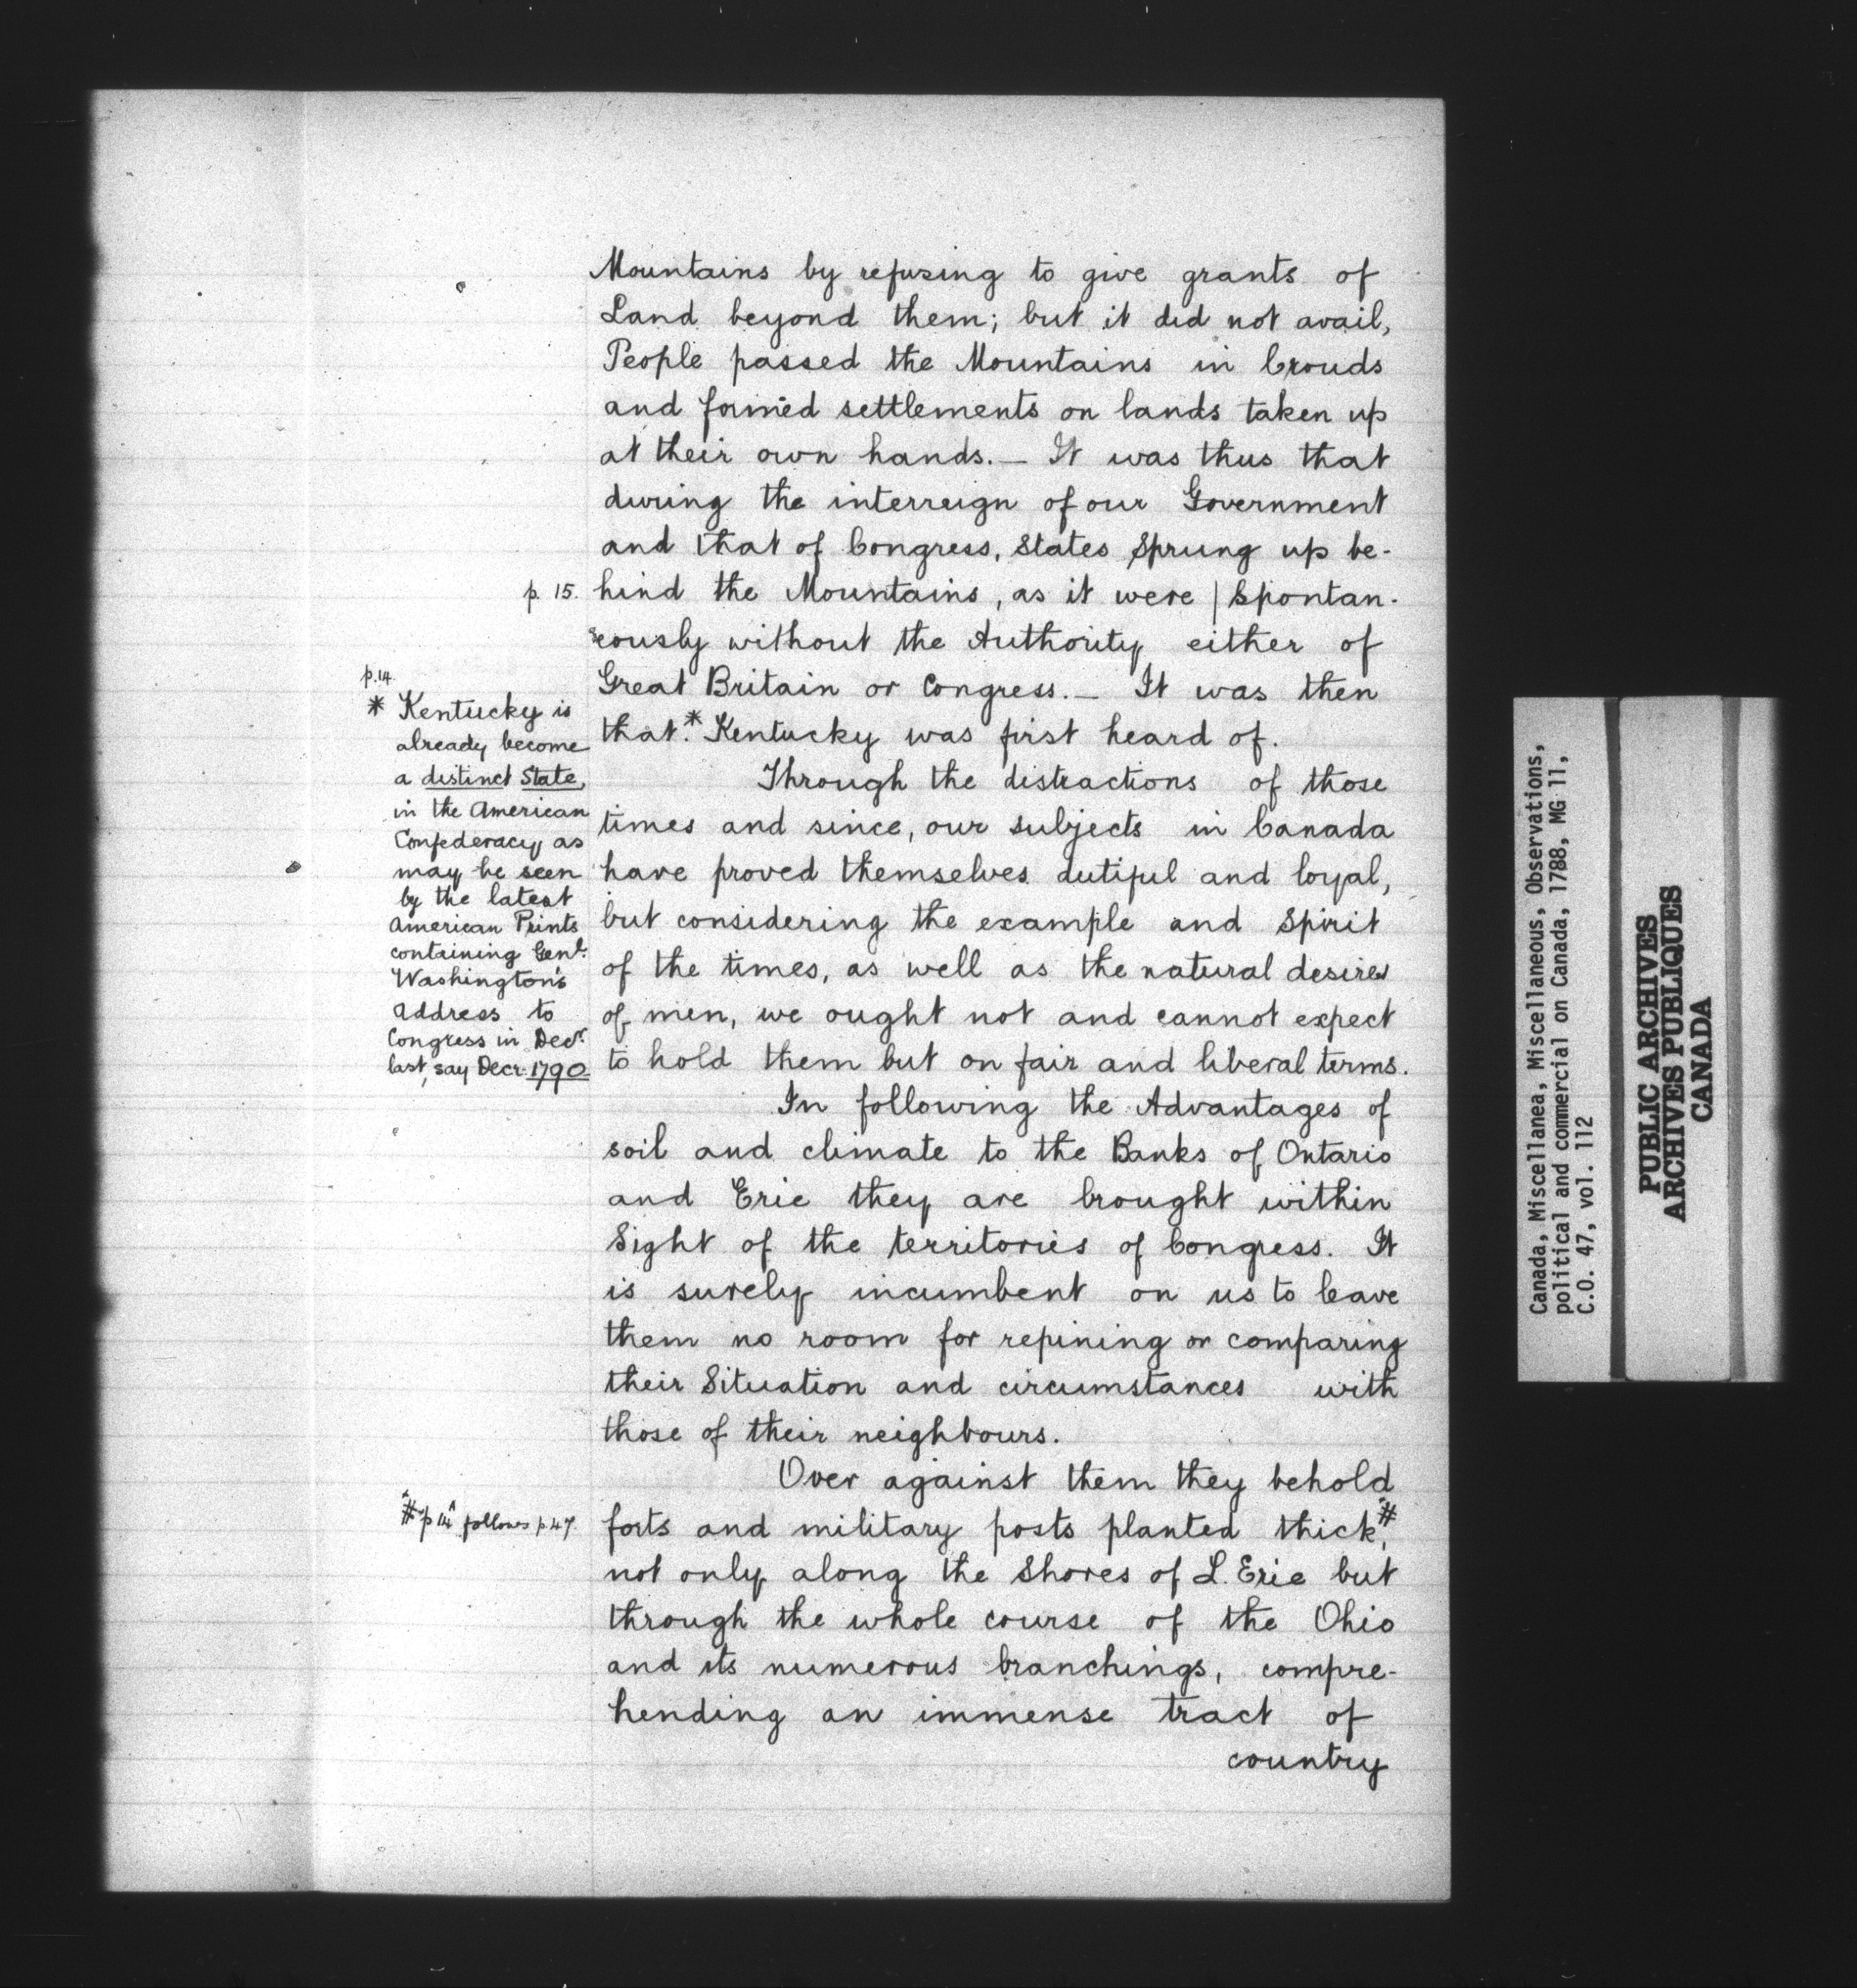 Mountains by refusing to give grants of
Land beyond them; but it did not avail,
People passed the Mountains in Crouds
and formed settlements on lands taken up
at their own hands.— It was thus that
during the interreign of our Government
and that of Congress, States Sprung up be-
p. 15.
hind the Mountains, as it were | Spontan-
eously without the Authority either of
Great Britain or Congress.— It was then
that.* Kentucky was first heard of.
p.14.
* Kentucky is
already become
a distinct State,
in the American
Confederacy as
may be seen
by the latest
American Prints
containing Genl.
Washington's
Address to
Congress in Decr.
last, say Decr. 1790
Through the distractions of those
times and since, our subjects in Canada
have proved themselves dutiful and loyal,
but considering the example and Spirit
of the times, as well as the natural desires
of men, we ought not and cannot expect
to hold them but on fair and liberal terms.
In following the Advantages of
soil and climate to the Banks of Ontario
and Erie they are brought within
Sight of the territories of Congress. It
is surely incumbent on us to leave
them no room for repining or comparing
their Situation and circumstances with
those of their neighbours.
Over against them they behold
# "p 14" follows p.47.
forts and military posts planted thick,#
not only along the Shores of L. Erie but
through the whole course of the Ohio
and its numerous branchings, compre-
hending an immense tract of
country
Canada, Miscellanea, Miscellaneous, Observations,
political and commercial on Canada, 1788, MG 11,
C.O. 47, vol. 112
PUBLIC ARCHIVES
ARCHIVES PUBLIQUES
CANADA